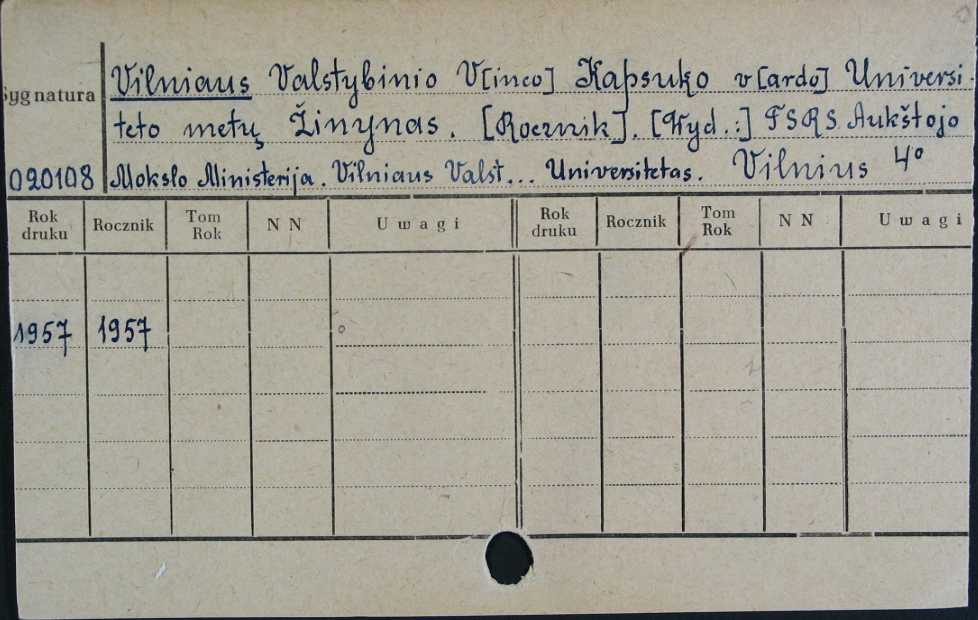 Vilniaus Valstybinio V[inco] Kapsuko v[ardo] Universi
Sygnatura
teto metų Žinynas. [Rocznik]. [Wyd.:] TSRS Aukštojo
020108 Mokslo Ministerija. Vilniaus Valst... Universitetas. Vilnius 4°
Rok druku Rocznik Tom Rok N N Uwagi Rok druku Rocznik Tom Rok N N Uwagi
1957 1957